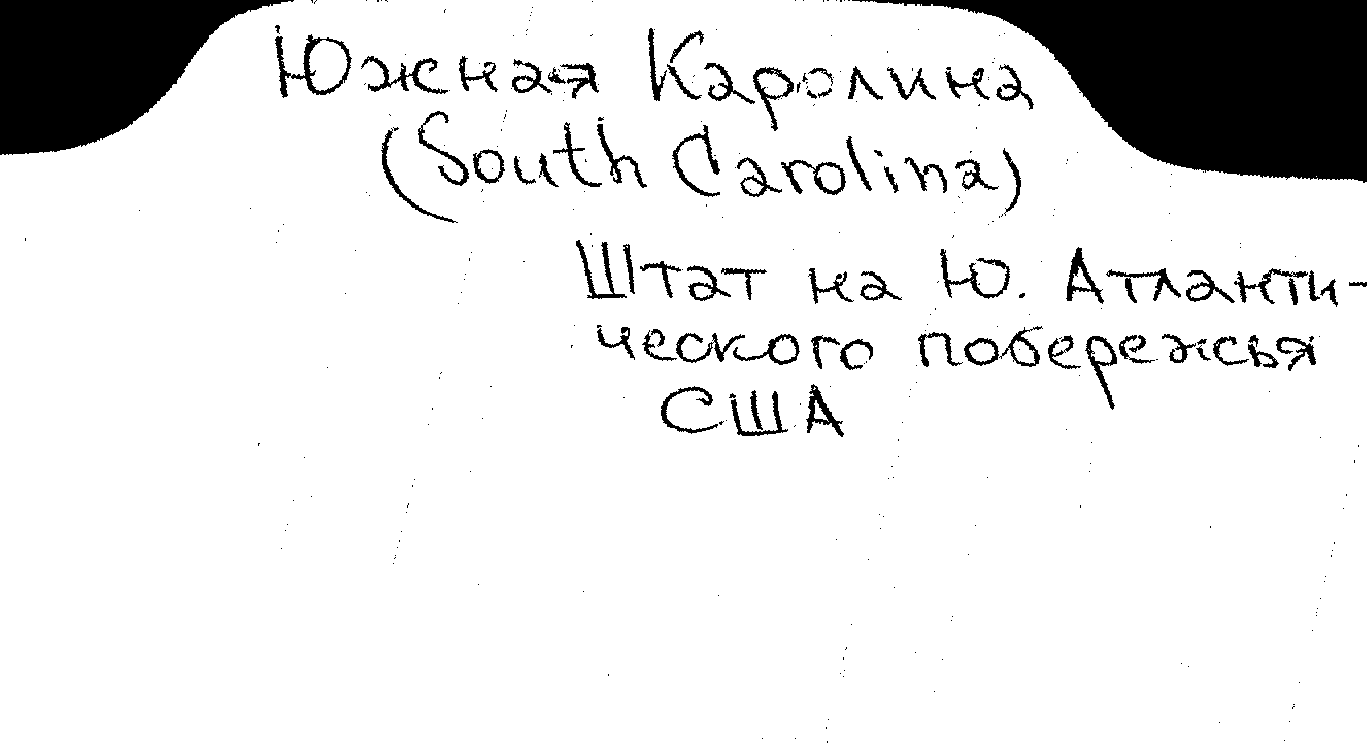 Южная Каролина
(South Carolina)
Штат на Ю. Атланти-
ческого побережья
США